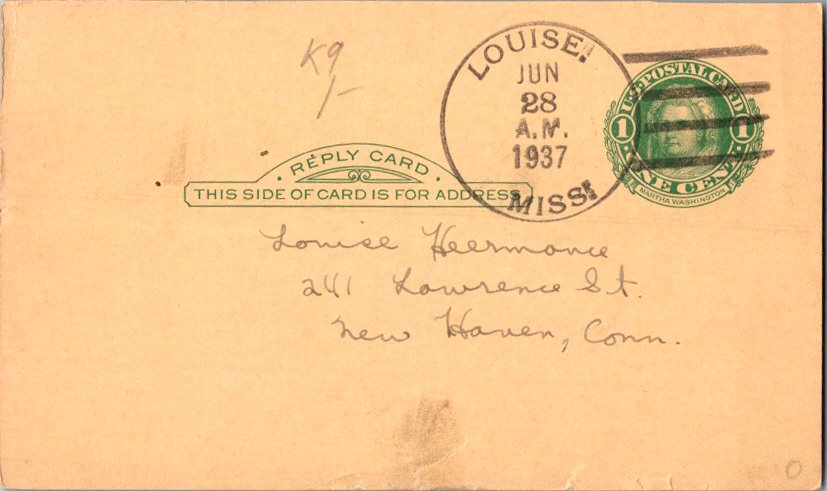 K9
/-
LOUISE.
JUN
28
A.M.
1937
MISS.
U.S. POSTAL CARD
1 1
ONE CENT
MARTHA WASHINGTON
· REPLY CARD ·
THIS SIDE OF CARD IS FOR ADDRESS
Louise Heermance
241 Lawrence St.
New Haven, Conn.
O